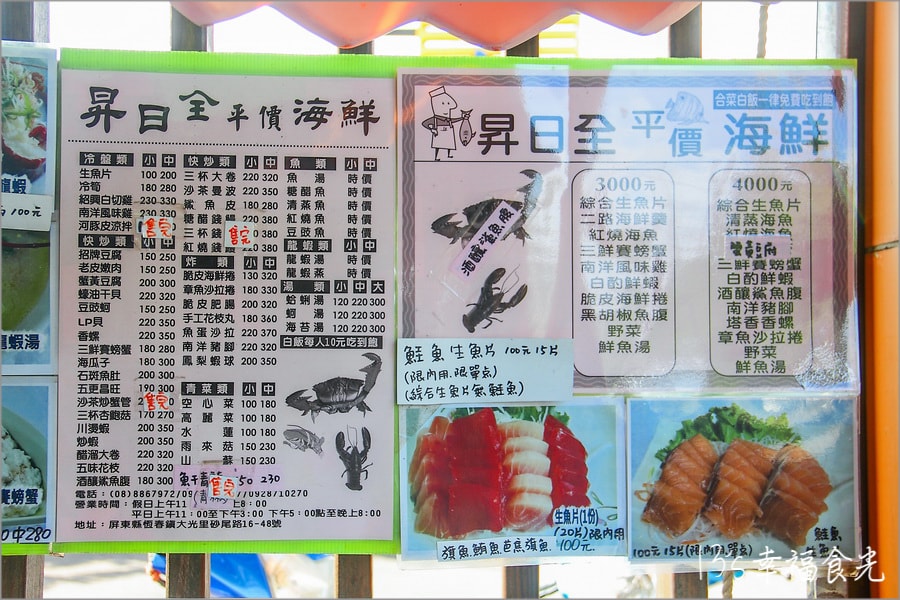 昇日全平價海鮮
冷盤類 小 中
生魚片 100 200
冷筍 180 280
紹興白切雞 230 330
南洋風味雞 230 330
河豚皮涼拌
售完
快炒類 小 中
招牌豆腐 150 250
老皮嫩肉 150 250
蟹黃豆腐 200 350
蠔油干貝 220 320
豆豉蚵 150 250
LP貝 220 350
香螺 220 350
三鮮賽螃蟹 180 280
海瓜子 180 280
石斑魚肚 200 300
五更昌旺 190 300
沙茶炒蟹管
售完
三杯杏鮑菇 170 270
川燙蝦 200 350
炒蝦 200 350
醋溜大卷 220 320
五味花枝 220 320
酒釀鯊魚腹 180 300
快炒類 小 中
三杯大卷 220 320
沙茶曼波 220 350
鯊魚皮 180 280
糖醋錢鰻
三杯錢
售完
紅燒錢
炸類 小 中
脆皮海鮮捲 130 320
章魚沙拉捲 220 370
脆皮肥腸 200 320
手工花枝丸 180 360
魚蛋沙拉 220 370
南洋豬腳 220 320
鳳梨蝦球 200 350
青菜類 小 中
空心菜 100 180
高麗菜 100 180
水蓮 100 180
雨來菇 150 230
山蘇 150 230
售完
230
魚類 小 中
魚湯 時價
糖醋魚 時價
清蒸魚 時價
紅燒魚 時價
豆豉魚 時價
龍蝦類 小 中
龍蝦湯 時價
龍蝦蒸 時價
湯類 小 中 大
蛤蜊湯 120 220 300
蚵湯 120 220 300
海苔湯 120 220 300
白飯每人10元吃到飽
電話：(08)8867972/09
/0928/10270
營業時間：假日上午11
上8:00
平日上午11:00至下午3:00 下午5:00點至晚上8:00
地址：屏東縣恆春鎮大光里砂尾路16-48號
合菜白飯一律免費吃到飽
昇日全平價海鮮
酒釀鯊魚腹
3000元
綜合生魚片
二路海鮮羹
紅燒海魚
三鮮賽螃蟹
南洋風味雞
白灼鮮蝦
脆皮海鮮捲
黑胡椒魚腹
野菜
鮮魚湯
4000元
綜合生魚片
清蒸海魚
三鮮賽螃蟹
白灼鮮蝦
酒釀鯊魚腹
南洋豬腳
塔香香螺
章魚沙拉捲
野菜
鮮魚湯
鮭魚生魚片 100元15片
(限內用.限單點)
(綜合生魚片無鮭魚)
生魚片(1份)
(20片)限內用
旗魚鮪魚芭蕉旗魚 100元
鮭魚
100元15片(限內用.限單點)
100元
龍蝦湯
賽螃蟹
中280
135幸福食光